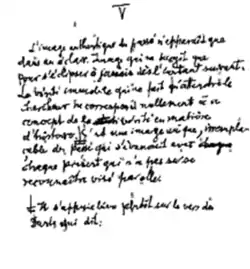 V
L'image authentique du passé n'apparaît que
dans un éclair. Image qui ne surgit que
pour s'éclipser à jamais dès l'instant suivant.
La vérité immobile qui ne fait qu'attendre le
chercheur ne correspond nullement à ce
concept de la vérité en matière
d'histoire. c'est une image unique, irremplaça
cable du passé qui s'évanouit avec chaque
chaque présent qui n'a pas su se
reconnaître visé par elle.
Il s'appuie bien plutôt sur le vers du
Dante qui dit: